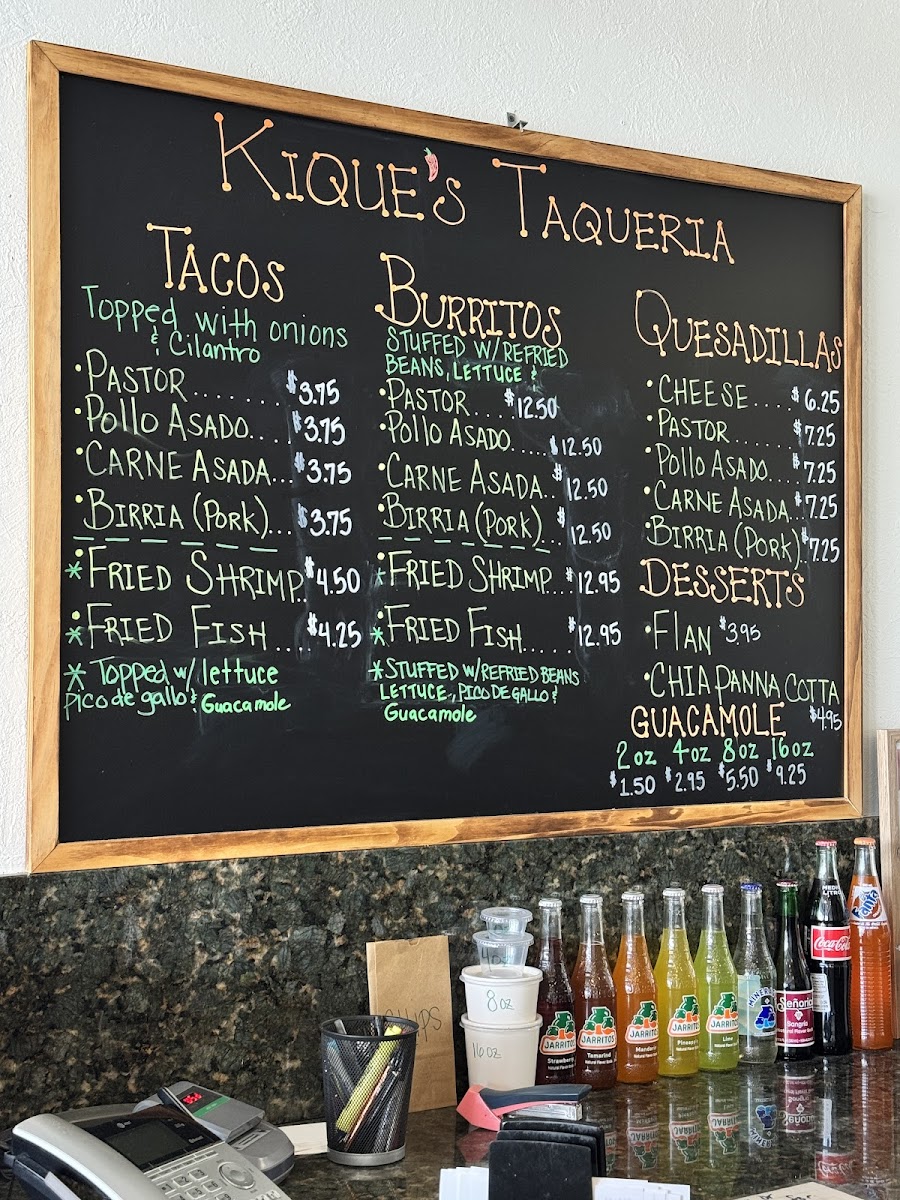 KIQUE'S TAQUERIA
TACOS
Topped with onions
& Cilantro
•PASTOR........$3.75
•Pollo ASADO....$3.75
•CARNE ASADA...$3.75
•BIRRIA (PORK)...$3.75
*•FRIED SHRIMP..$4.50
*•FRIED FISH....$4.25
* Topped w/ lettuce
pico de gallo & Guacamole
BURRITOS
STUFFED W/REFRIED
BEANS, LETTUCE &
•PASTOR....$12.50
•Pollo ASADO....$12.50
•CARNE ASADA..$12.50
•BIRRIA (PORK).$12.50
*•FRIED SHRIMP....$12.95
*•FRIED FISH....$12.95
*STUFFED W/REFRIED BEANS
LETTUCE, PICO DE GALLO &
Guacamole
QUESADILLAS
•CHEESE.....$6.25
•PASTOR.......$7.25
•Pollo ASADO...$7.25
•CARNE ASADA..$7.25
•BIRRIA (PORK)..$7.25
DESSERTS
•FlAN $3.95
•CHIA PANNA COTTA
$4.95
GUACAMOLE
2 oz 4oz 8oz 16oz
$1.50 $2.95 $5.50 $9.25
4oz
8oz
16oz
JARRITOS
Strawberry
Natural Flavor Soda
JARRITOS
Tamarind
Natural Flavor Soda
JARRITOS
Mandarin
JARRITOS
Pineapple
JARRITOS
Lime
MINERAL
Señorial
Sangria
MEDIO
LITRO
Coca-Cola
Fanta
at&t